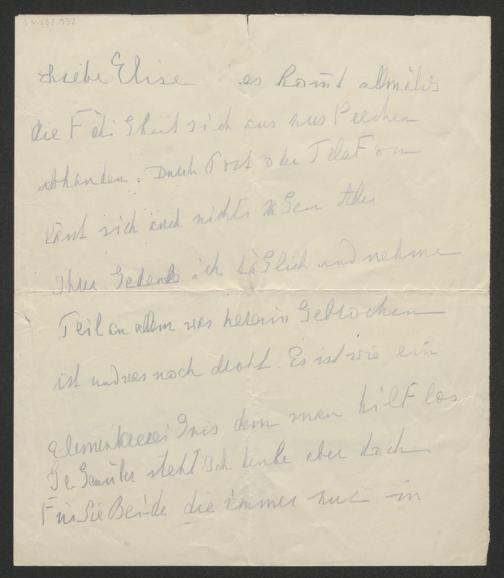 Liebe Elise es komt allmälig
die Fähigkeit sich aus zus Prechen
abhanden. Durch Post oder TeleFon
lässt sich auch nichts saGen Aber
Ihrer Gedenke ich täGlich und nehme
Teil an allem was herein Gebrochen
ist und was noch droht. Es ist wie ein
ElementarereiGnis dem man hilFlos
GeGenüber steht Ich denke aber doch
Für Sie Beide die immer nur in